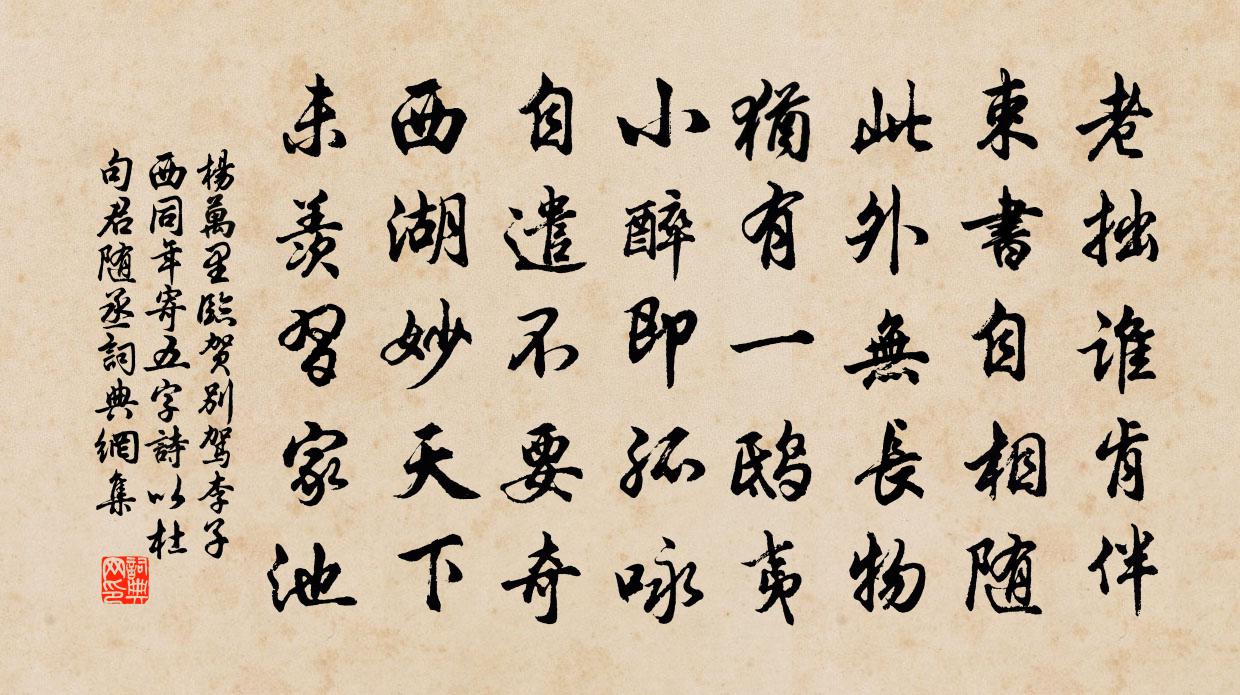 老拙誰肯伴
束書自相随
此外無長物
猶有一鴟夷
小醉即孤咏
自遣不要奇
西湖妙天下
未羨習家池
楊萬里臨賀別駕李子
西同年寄五字詩以杜
句君随丞詞典網集
詞典
网印